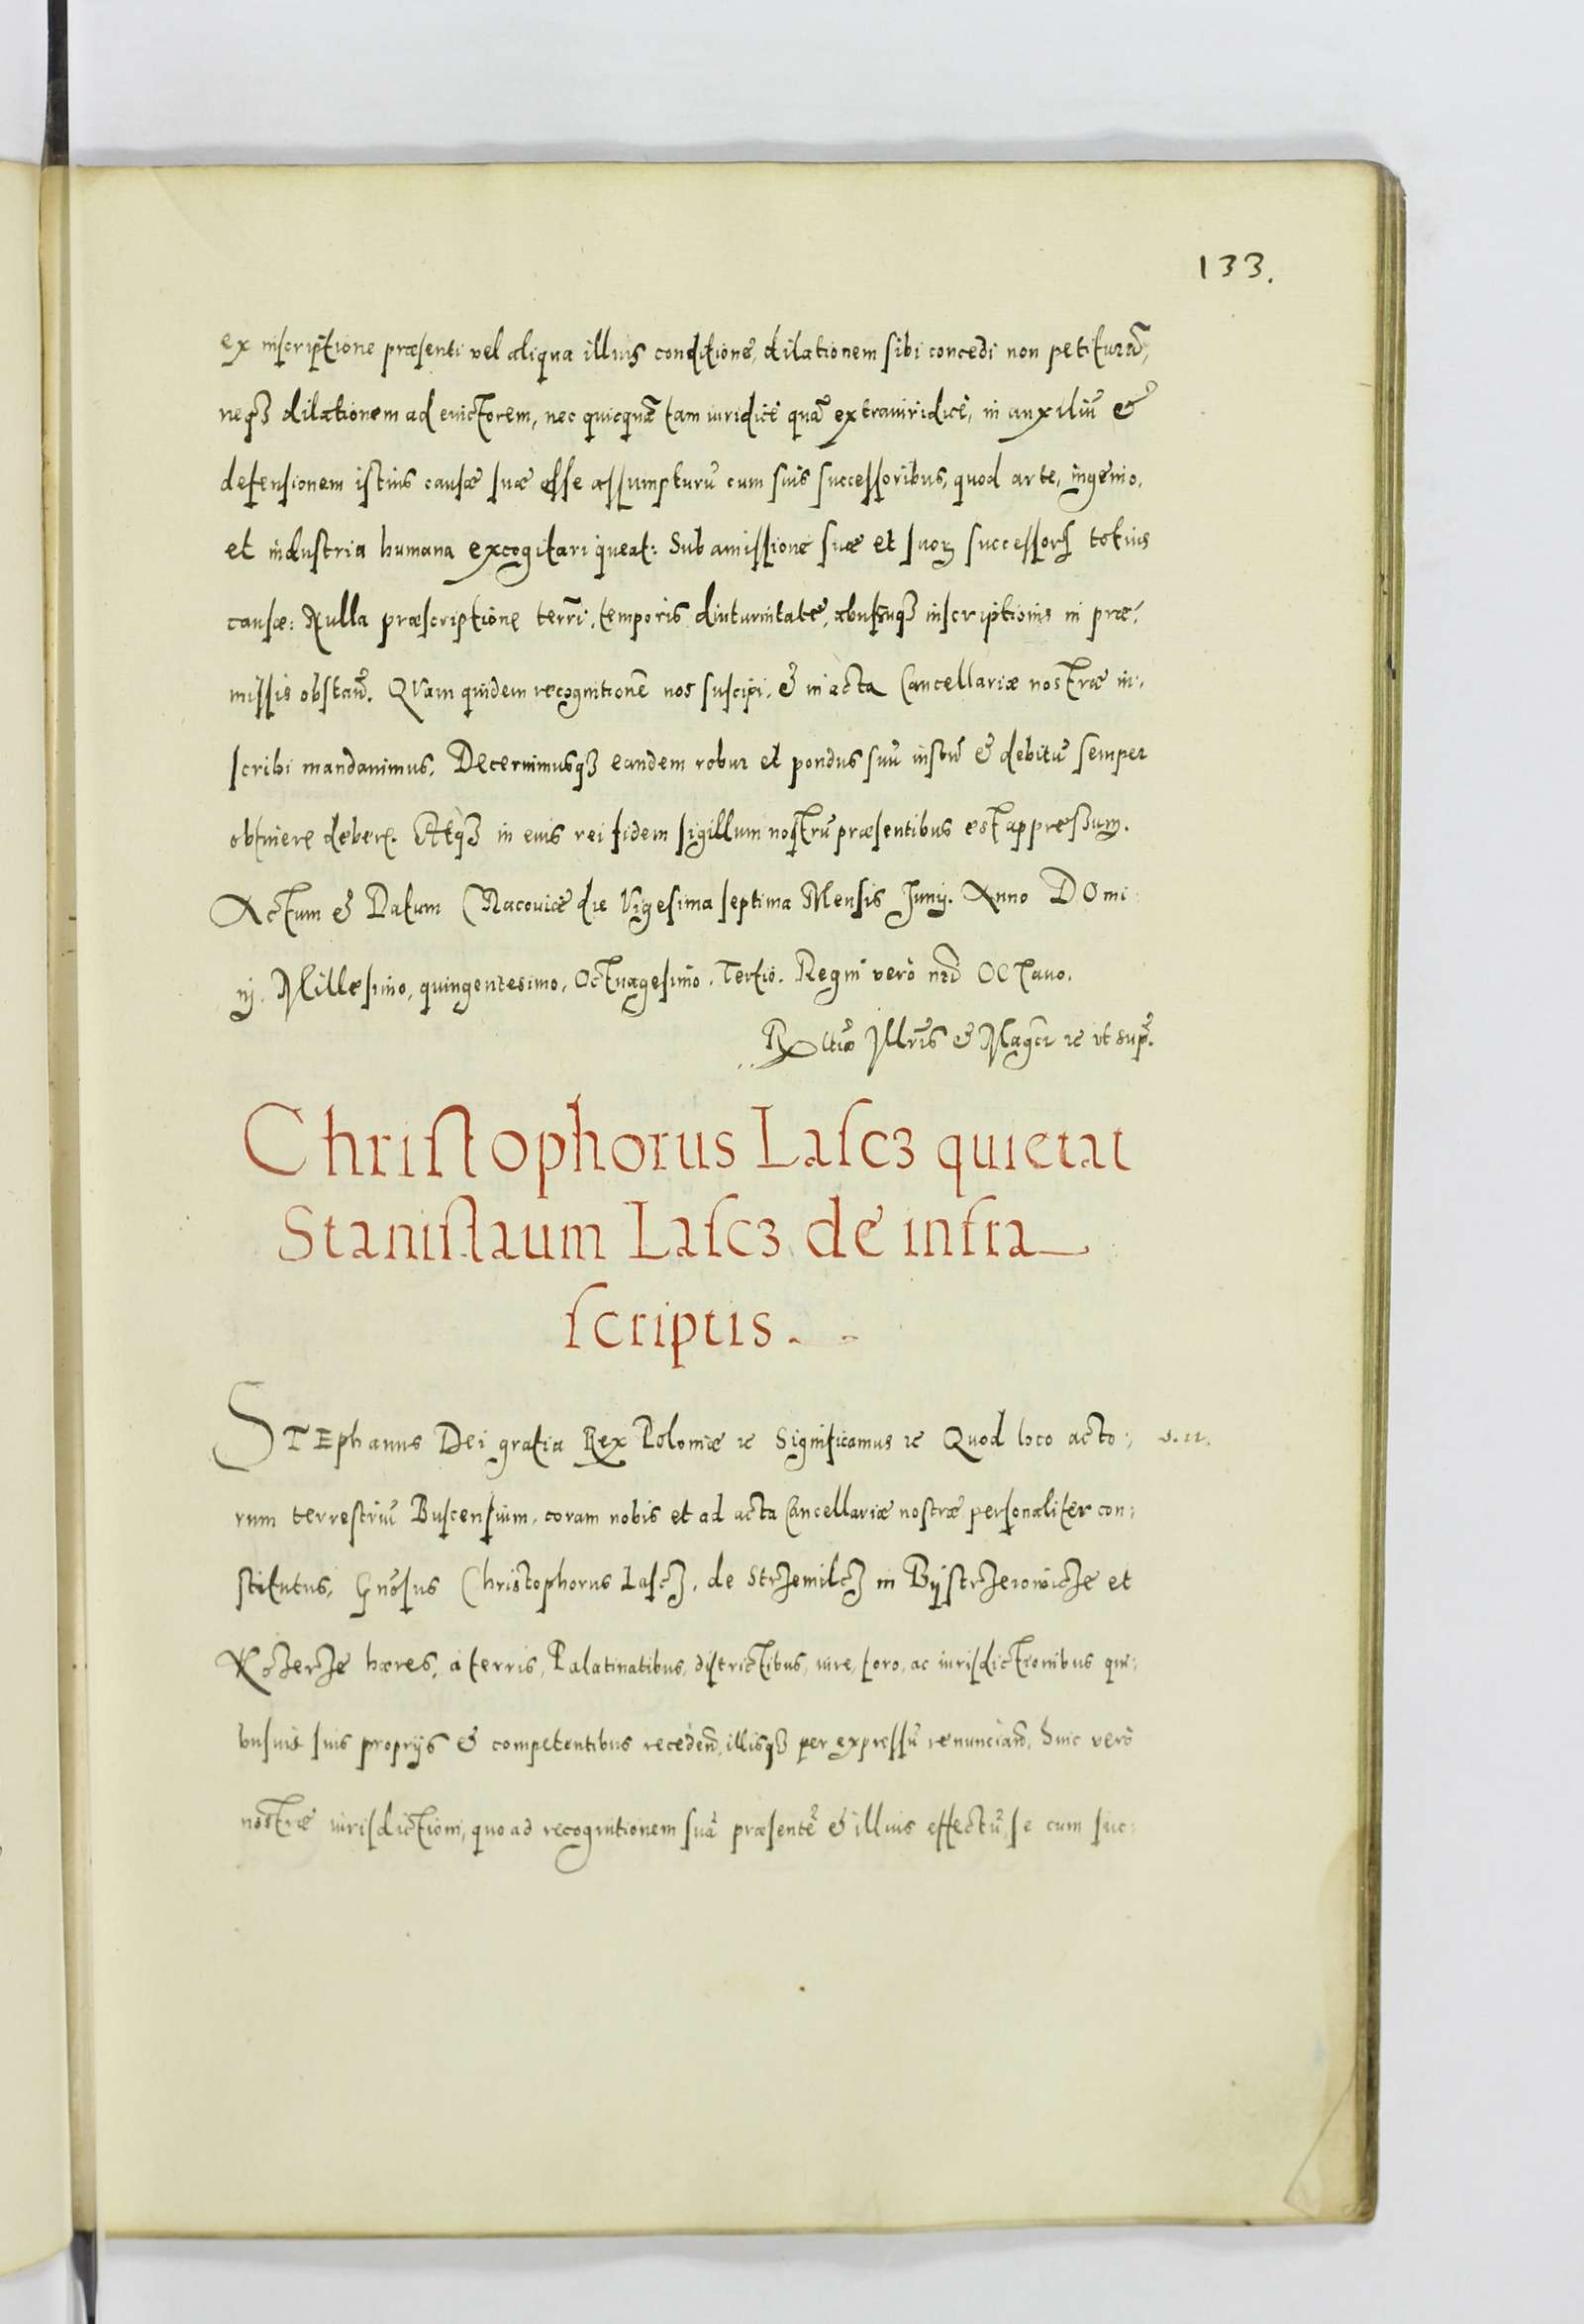 133.
ex inscriptione præsenti vel aliqua illius conditione, dilationem sibi concedi non petiturã,
neqȝ dilationem ad evictorem, nec quicquã tam iuridicè quã extraiuridicè, in auxiliũ &
defensionem istius causæ suæ esse assumpturũ cum suis successoribus, quod arte, ingenio,
et industria humana excogitari queat: Sub amissione suæ et suoꝝ successorꝝ totius
causæ: Nulla præscriptione terrẽ, temporis diuturnitate, inscriptionis in præ-
missis obstañ. QVam quidem recognitionẽ nos suscipi, & in acta Cancellariæ nostræ in-
scribi mandauimus, Decernimusqȝ eandem robur et pondus suũ iustũ & debitũ semper
obtinere debere. Atqȝ in eius rei fidem sigillum nostrũ præsentibus est appressum.
Actum & Datum Cracoviæ die Vigesima septima Mensis Junij. Anno DOmi
nj. Millesimo, quingentesimo, Octuagesimo, Tertio. Regni verò nrĩ OCTauo.
Illris & Magci ꝛc ut sup.
Christophorus Lascz quietat
Stanislaum Lascz de infra
scriptis.
STEphanus Dei gratia Rex Poloniæ ꝛc Significamus ꝛc Quod loco acto-
rum terrestriũ Buscensium, coram nobis et ad acta Cancellariæ nostræ personaliter con-
stitutus, Gnõsus Christophorus Lascz, de Strzemilcz in Bystrzeiowicze et
hæres, à terris, Palatinatibus, districtibus, iure, foro, ac iurisdictionibus qui-
busuis suis proprijs & competentibus recedeñ, illisqȝ per expressũ renunciañ, huic verò
nostræ iurisdictioni, quo ad recognitionem suã præsentẽ & illius effectũ, se cum suc-